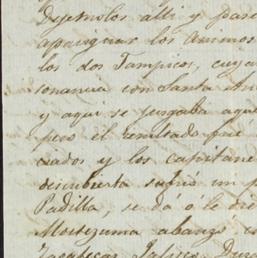 Dejemoslos alli y pase
apasiguar los animos
los dos Tampicos, cuya
sonancia con Santa An
y aqui se jusgaba aque
pero el resultado fue
ciados y los capitane
descubierta sufrió un p
Padilla, se dá ó le die
Moctezuma abanzó
Zacatecas Jalisco Dura